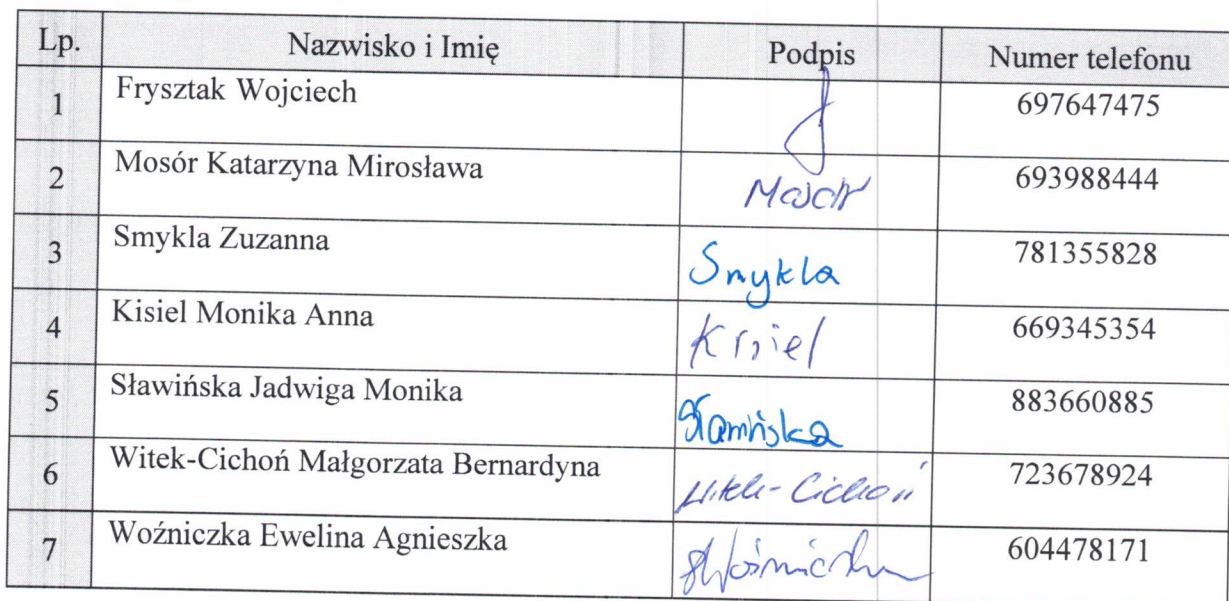 Lp. Nazwisko i Imię Podpis Numer telefonu
1 Frysztak Wojciech 697647475
2 Mosór Katarzyna Mirosława Mosór 693988444
3 Smykla Zuzanna Smykla 781355828
4 Kisiel Monika Anna Kisiel 669345354
5 Sławińska Jadwiga Monika Sławińska 883660885
6 Witek-Cichoń Małgorzata Bernardyna Witek-Cichoń 723678924
7 Woźniczka Ewelina Agnieszka 604478171